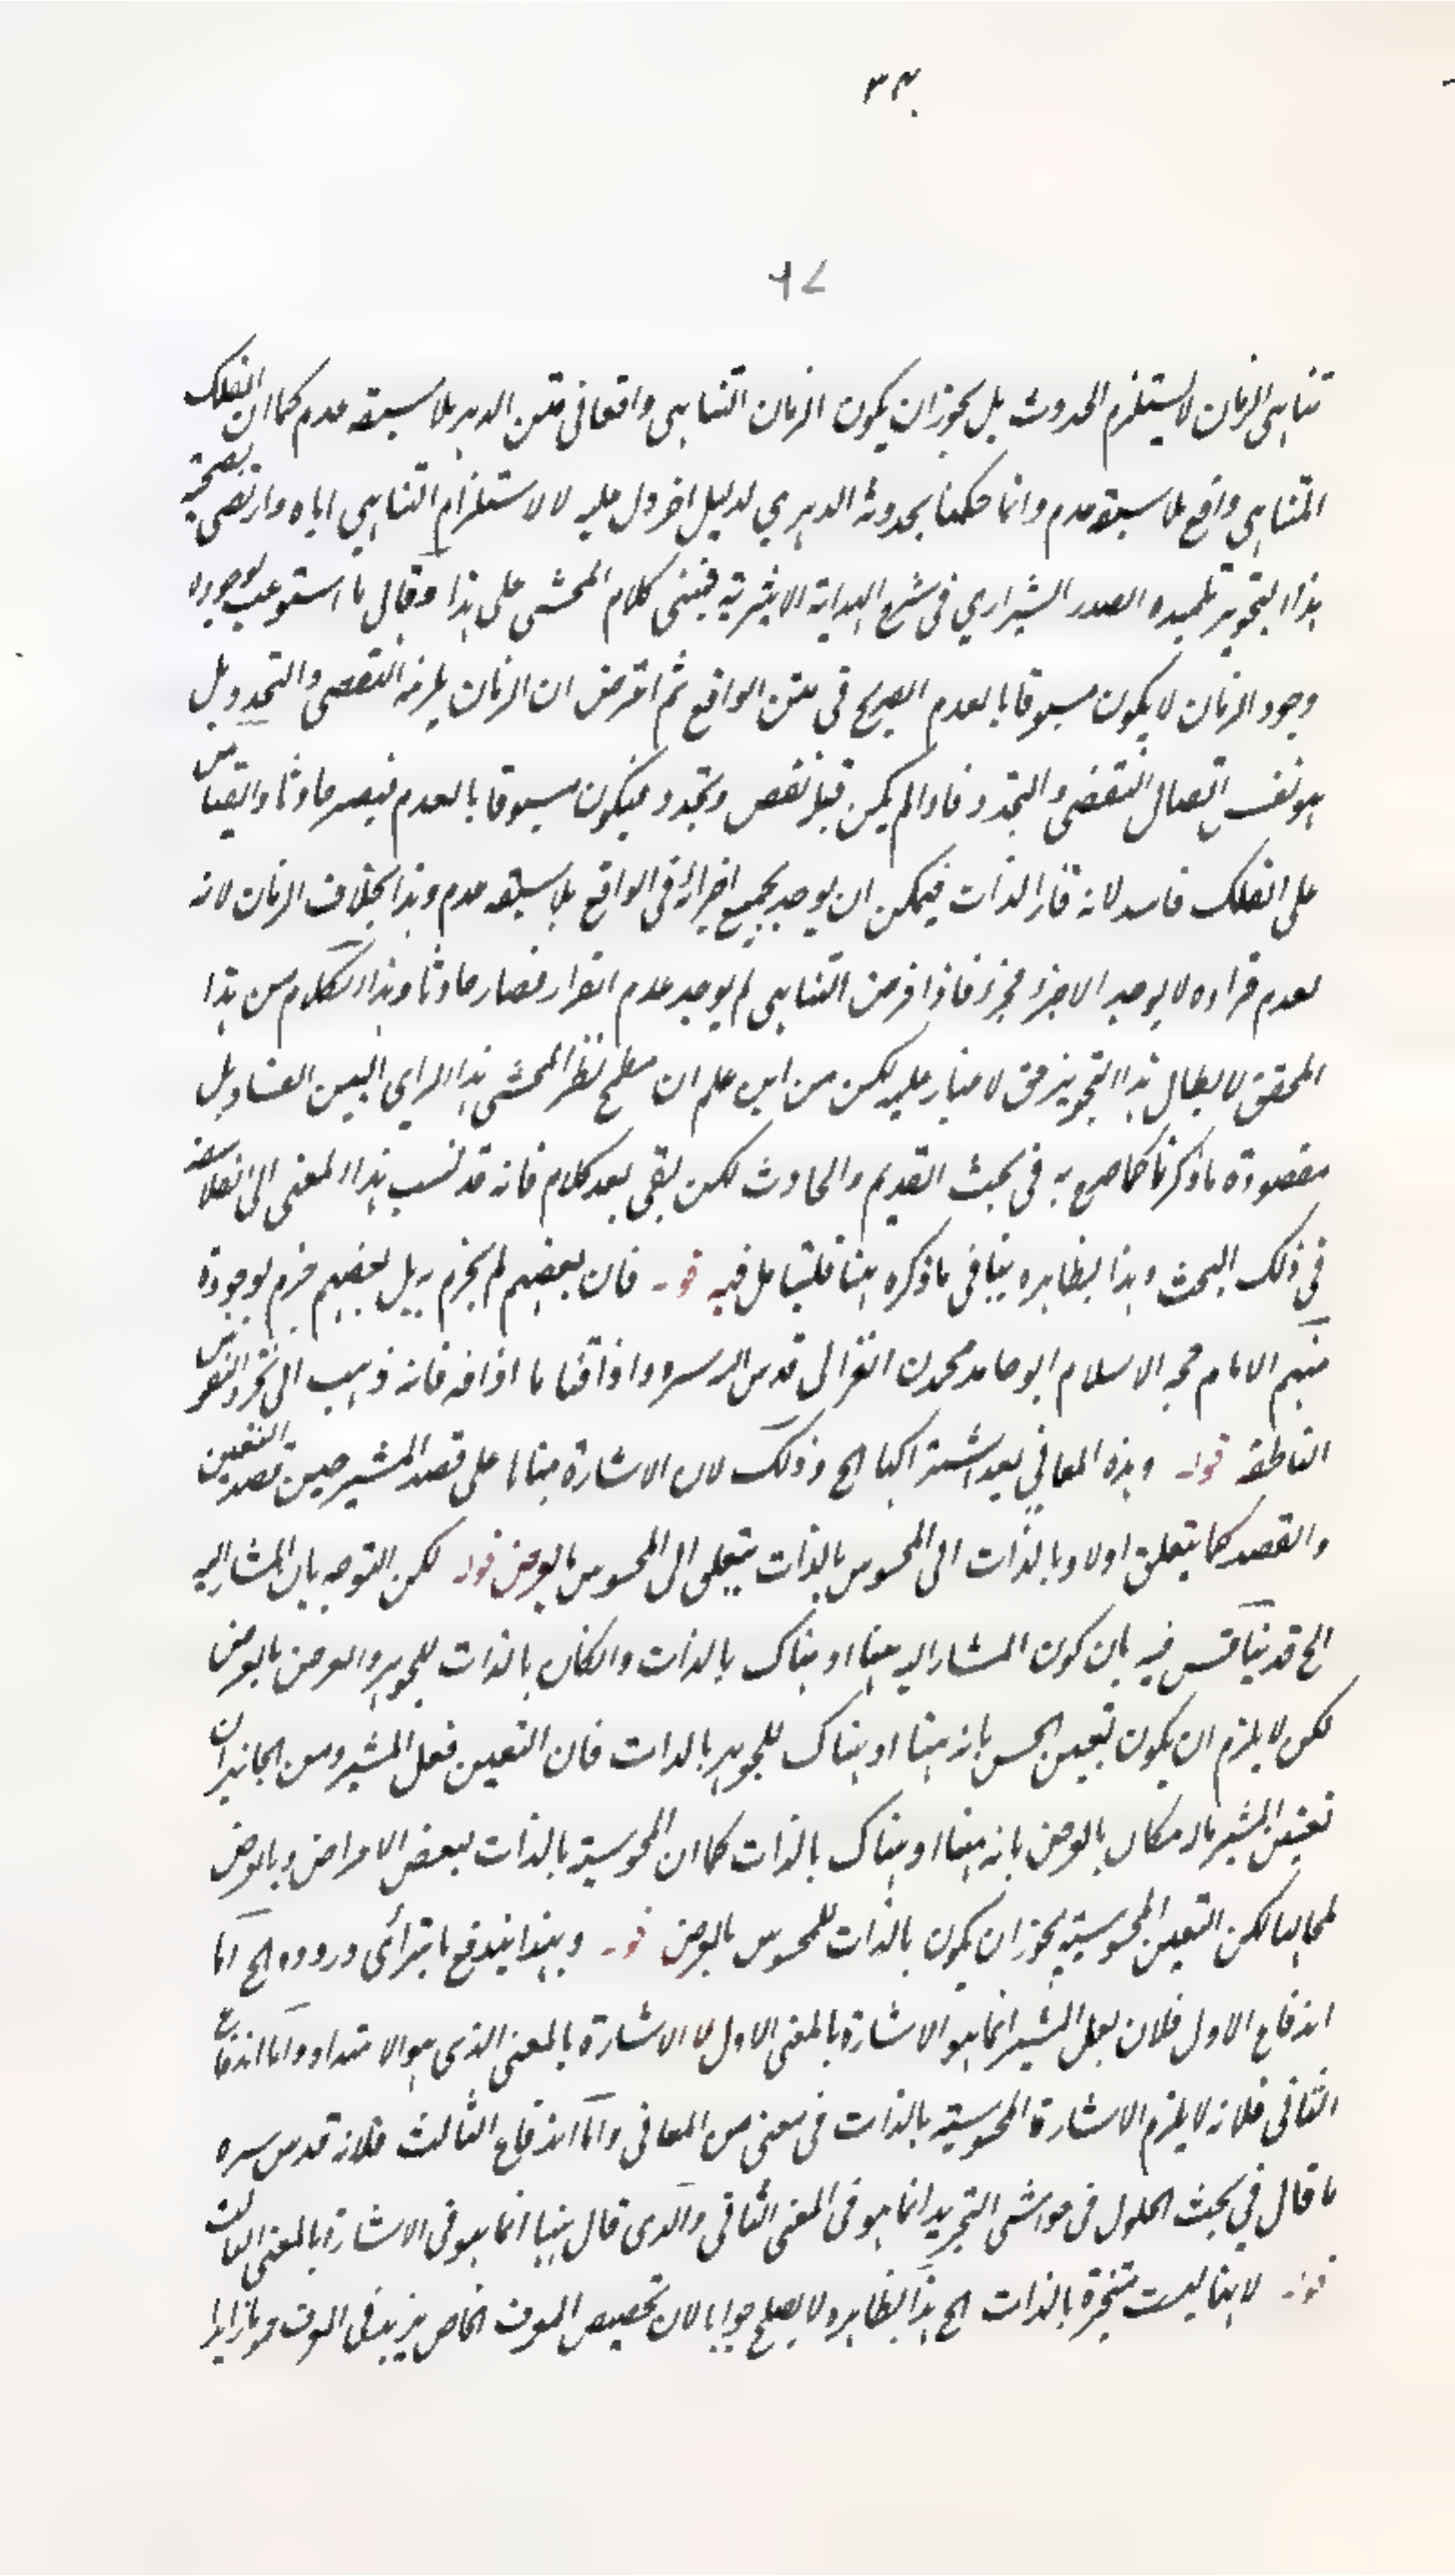 تناهى الزمان لا يستلزم الحدوث بل يجوز ان يكون الزمان التناهى واقعا فى متن الدهر بلا سبقه عدم كما ان الفلك
المتناهى واقع بلا سبقه عدم وانما حكمنا بحدوثه الدهرى لدليل اخر دل عليه لا لاستلزام التناهى اياه وارتضى بصحة
هذا التجويز تلميذه الصدر الشيرازي فى شرح الهداية الاثيرية فبنى كلام المحشى على هذا وقال ما استوعب بوجوده
وجود الزمان لا يكون مسبوقا بالعدم الصريح فى متن الواقع ثم اعترض ان الزمان يلزمه التقضى والتجدد بل
هو نفس اتصال التقضى والتجدد فاذا لم يكن قبل تقض وتجدد فيكون مسبوقا بالعدم فيصير حادثا والقياس
على الفلك فاسد لانه قار الذات فيمكن ان يوجد بجميع اجزائه فى الواقع بلا سبقه عدم وهذا بخلاف الزمان لانه
لعدم قراره لا يوجد الا جزء فجزء فاذا فرض التناهى لم يوجد عدم القرار فصار حادثا وهذا الكلام من هذا
المحقق لابطال هذا التجويز حق لا غبار عليه لكن من اين علم ان مطمح نظر المحشى هذا الراى البين الفساد بل
مقصوده ما ذكرنا كما صرح به فى بحث القديم والحادث لكن بقى بعد كلام فانه قد نسب هذا المعنى الى الفلاسفة
فى ذلك البحث وهذا بظاهره ينافى ما ذكره هنا فليتامل فيه قوله فان بعضهم لم يجزم به بل بعضهم جزم بوجوده
منهم الامام حجة الاسلام ابو حامد محمدن الغزالى قدس الله سره واذاقنا ما اذاقه فانه ذهب الى تجرد النفوس
الناطقة قوله وهذه المعانى بعد اشتراكها الخ وذلك لان الاشارة هنا على قصد المشير حين قصد التعيين
والقصد كما يتعلق اولا وبالذات الى المحسوس بالذات يتعلق الى المحسوس بالعرض قوله لكن التوجه بان المشار اليه
الخ قد يناقش فيه بان كون المشار اليه هنا او هناك بالذات والكان بالذات للجوهر والعرض بالعرض
لكن لا يلزم ان يكون تعيين الحس بانه هنا او هناك للجوهر بالذات فان التعيين فعل المشير ومن الجائز ان
تعيين المشير بالعرض بانه هنا او هناك بالذات كما ان المحسوسية بالذات لبعض الاعراض وبالعرض
لمحالها لكن التعيين المحسوسية يجوز ان يكون بالذات للمحسوس بالعرض قوله وبهذا يندفع ما يترأى وروده الخ اما
اندفاع الاول فلان بعل المشير انما هو الاشارة بالمعنى الاول لا الاشارة بالمعنى الذى هو الامتداد واما اندفاع
الثانى فلانه لا يلزم الاشارة المحسوسية بالذات فى معنى من المعانى واما اندفاع الثالث فلانه قدس سره
ما قال فى بحث الحلول فى حواشى التجريد انما هو فى المعنى الثانى والذى قال هنا انما هو فى الاشارة بالمعنى الثالث
قوله لا هنا ليست متحيزة بالذات الخ هذا بظاهره لا يصلح جوابا لان تخصيص المعرف الخاص